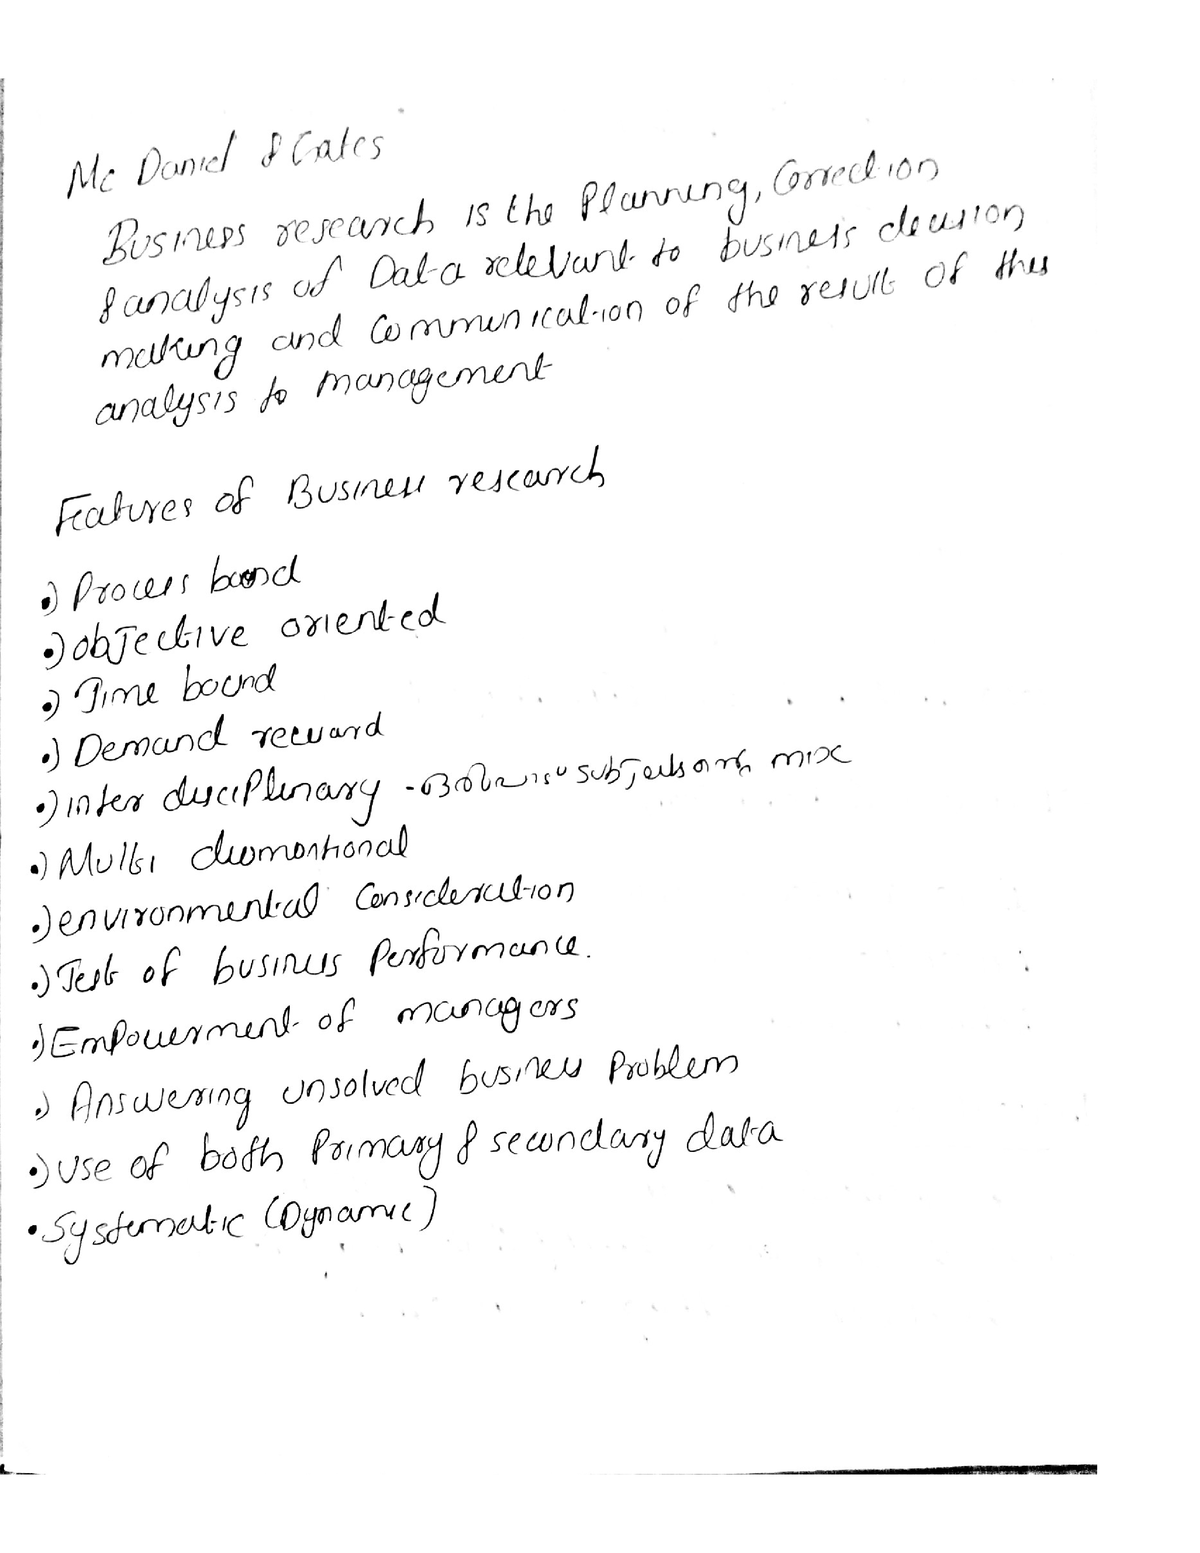 Mc Daniel & Gates
Business research is the Planning, Correction
& analysis of Data relevant to business decision
making and Communication of the result of this
analysis to management
Features of Business research
•) Process bound
•) objective oriented
•) Time bound
•) Demand reward
•) inter disciplinary - subjects mix
•) Multi dimontional
•) environmental Consideration
•) Test of business Performance.
•) Empowerment of managers
•) Answering unsolved business Problem
•) use of both Primary & secondary data
• Systematic (Dynamic)